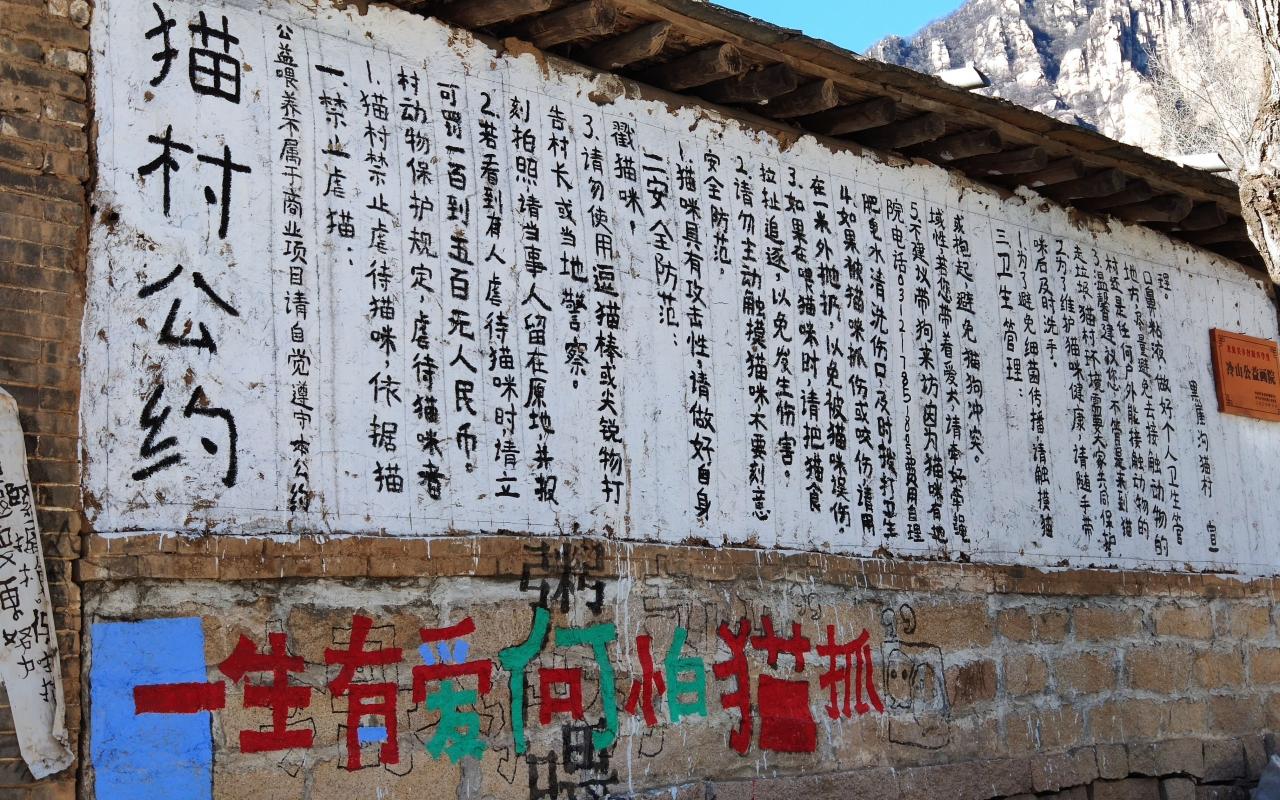 猫村公约
公益喂养不属于商业项目请自觉遵守本公约
一.禁止虐猫.
1.猫村禁止虐待猫咪,依据猫
村动物保护规定,虐待猫咪者
可罚一百到五百元人民币.
2.若看到有人虐待猫咪时请立
刻拍照请当事人留在原地,并报
告村长或当地警察。
3.请勿使用逗猫棒或尖锐物打
戳猫咪,
二安全防范:
1.猫咪具有攻击性,请做好自身
安全防范。
2.请勿主动触摸猫咪不要刻意
拉扯追逐,以免发生伤害。
3.如果在喂猫咪时,请把猫食
在一米外抛扔,以免被猫咪误伤
4.如果被猫咪抓伤或咬伤请用
肥皂水清洗伤口及时拨打卫生
院电话 费用自理
5.不建议带狗来访因为猫咪有地
域性若您带着爱犬,请牵好牵绳
或抱起避免猫狗冲突。
三卫生管理:
1.为了避免细菌传播请触摸猫
咪后及时洗手.
2.为了维护猫咪健康,请随手带
走垃圾猫村环境需要大家共同保护
3.温馨建议您,不管是来到猫
村还是任何户外能接触动物的
地方,尽量避免去接触动物的
口鼻粘液,做好个人卫生管
理。
黑崖沟猫村 宣
冷山公益画院
一生有爱何怕猫抓